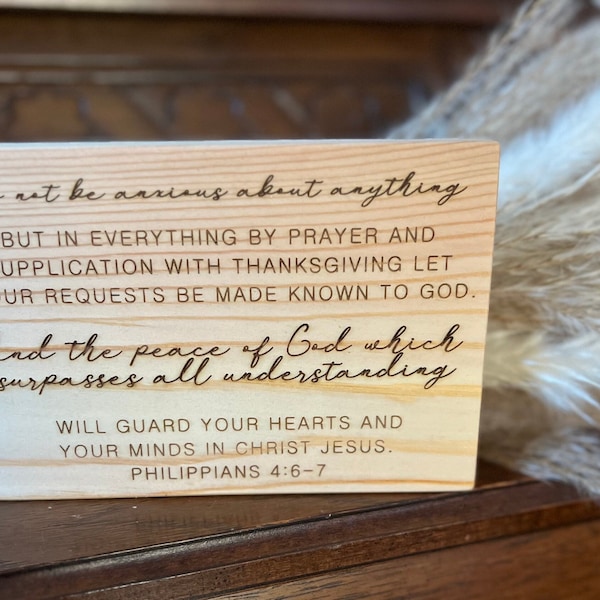 not be anxious about anything
BUT IN EVERYTHING BY PRAYER AND
UPPLICATION WITH THANKSGIVING LET
OUR REQUESTS BE MADE KNOWN TO GOD.
and the peace of God which
surpasses all understanding
WILL GUARD YOUR HEARTS AND
YOUR MINDS IN CHRIST JESUS.
PHILIPPIANS 4:6–7